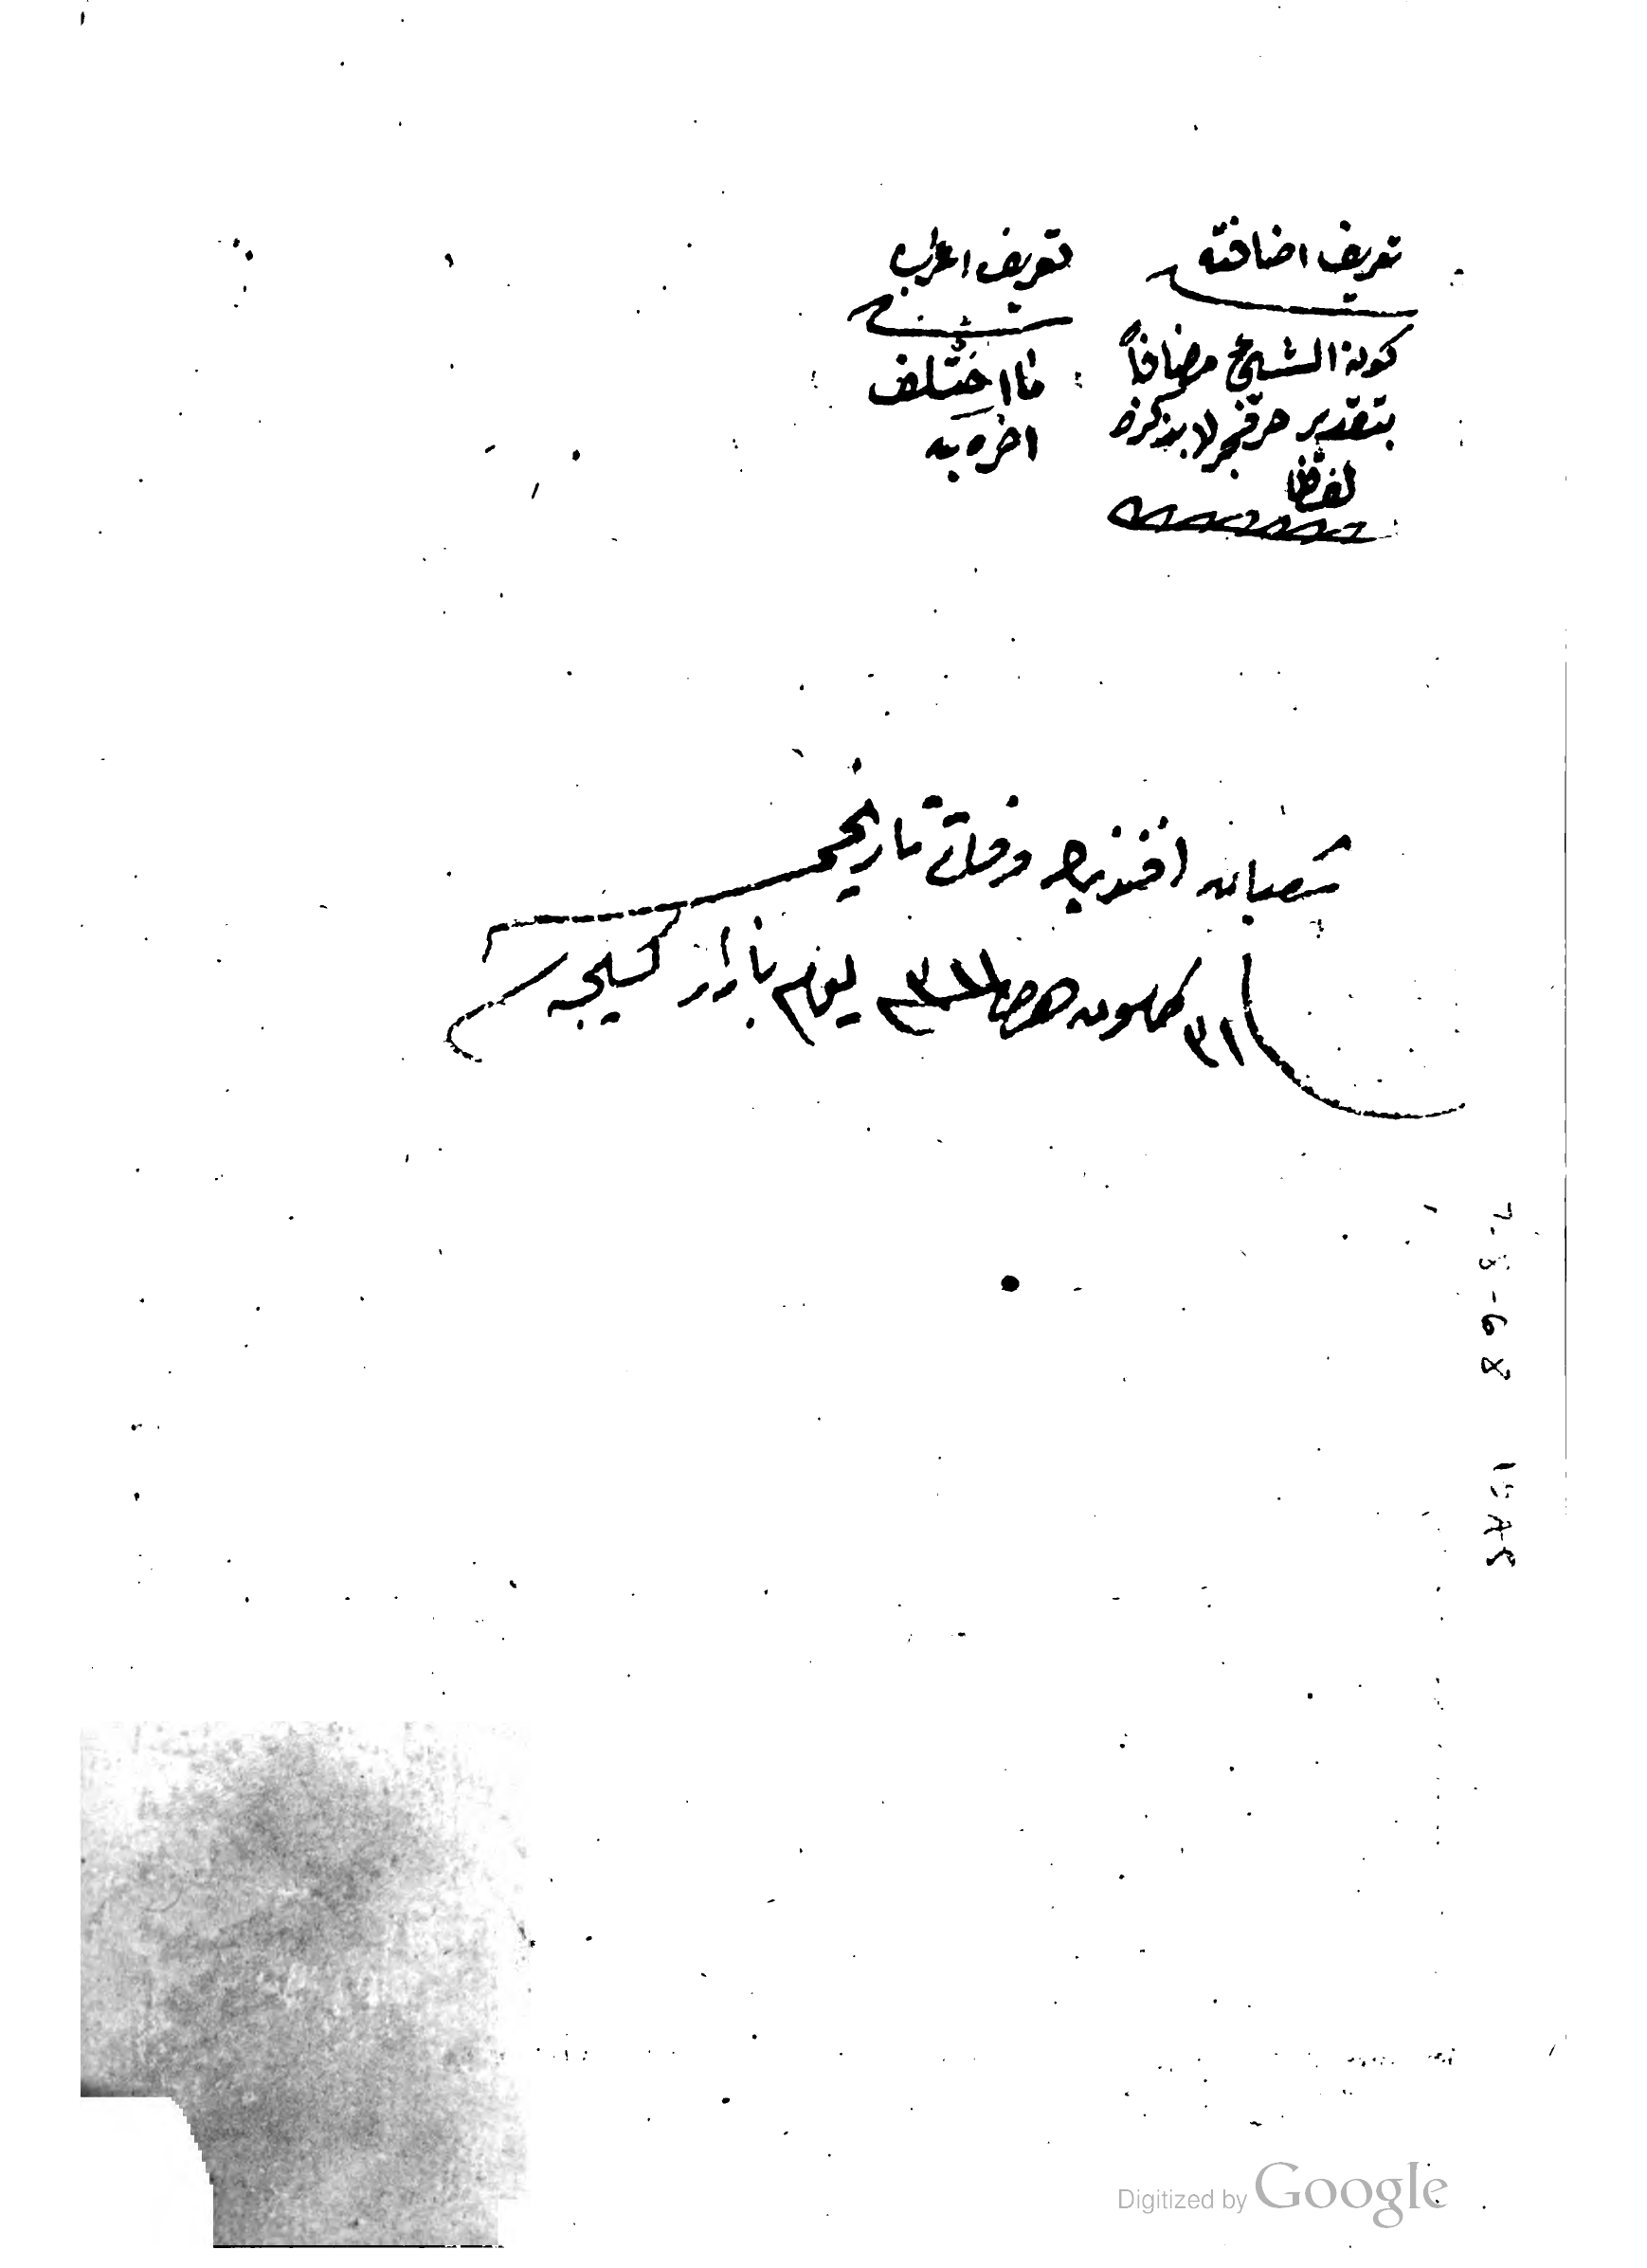 تعريف اضافته
كون الشيئ مضافاً
بتقدير حرف جر لا بذكره
لفظا
تعريف اعراب
ما اختلف
اخره به
شعبان افندينك وفاتى تاريخى
٣١ يوم بازار كيجه
7-8-68
Digitized by Google